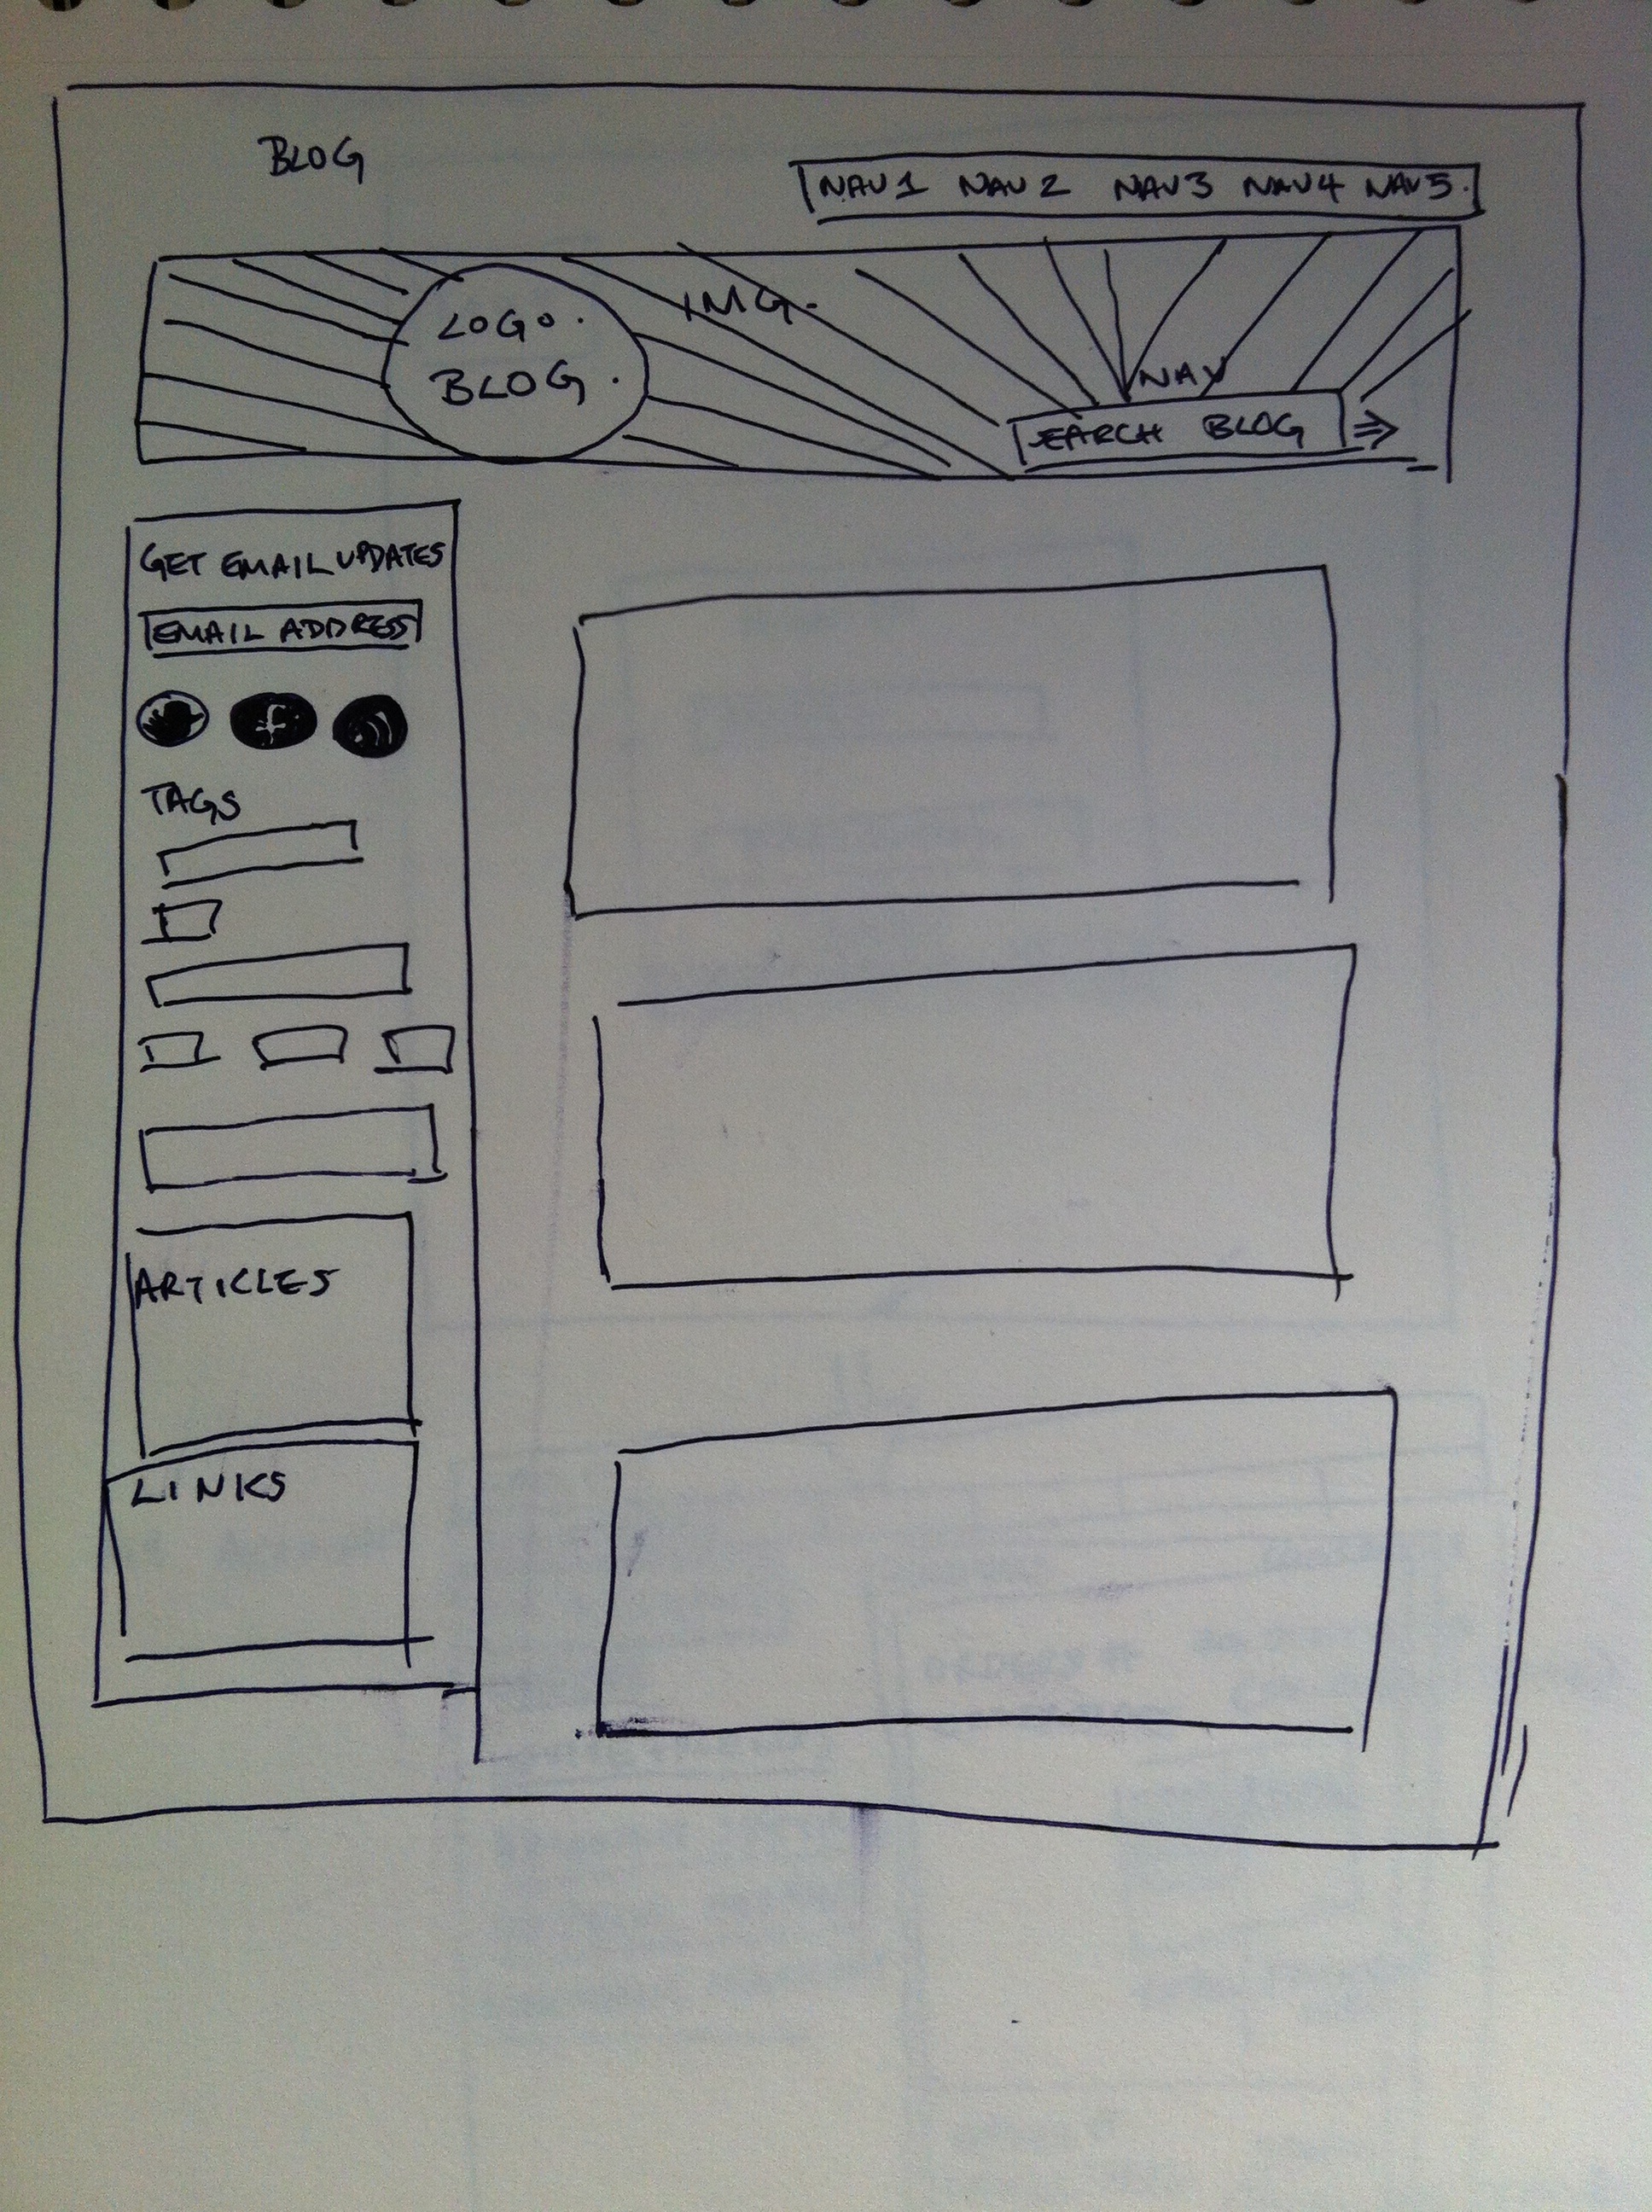 BLOG
NAV1 NAV2 NAV3 NAV4 NAV5.
LOGO.
BLOG.
IMG.
NAV
SEARCH BLOG ⇒
GET EMAIL UPDATES
EMAIL ADDRESS
f
TAGS
ARTICLES
LINKS